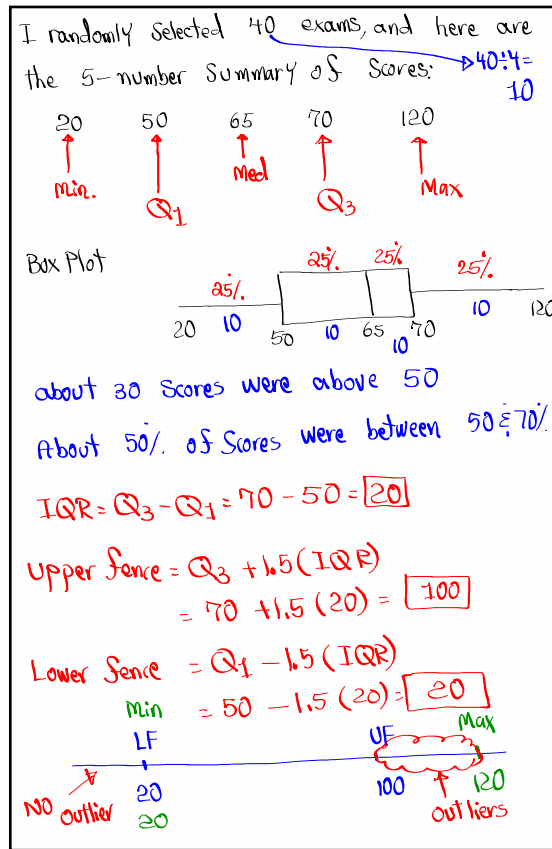 I randomly selected 40 exams, and here are
40÷4=
the 5-number Summary of Scores:
10
20 50 65 70 120
Min. Q1 Med Q3 Max
Box Plot
25% 25% 25% 25%
20 10 50 10 65 10 70 10 120
about 30 Scores were above 50
About 50% of Scores were between 50 & 70%
IQR = Q3 - Q1 = 70 - 50 = 20
Upper fence = Q3 + 1.5 (IQR)
= 70 + 1.5 (20) = 100
Lower fence = Q1 - 1.5 (IQR)
= 50 - 1.5 (20) = 20
Min Max
LF UF
20 100 120
20
NO outlier outliers